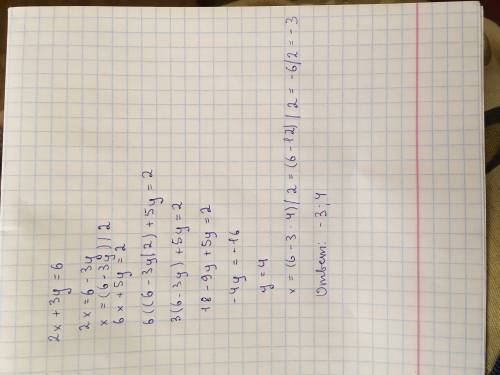 2x + 3y = 6
2x = 6 - 3y
x = (6 - 3y) / 2
6x + 5y = 2
6((6 - 3y/2) + 5y = 2
3(6 - 3y) + 5y = 2
18 - 9y + 5y = 2
-4y = -16
y = 4
x = (6 - 3 · 4) / 2 = (6 - 12) / 2 = -6/2 = -3
Ответ: -3; 4